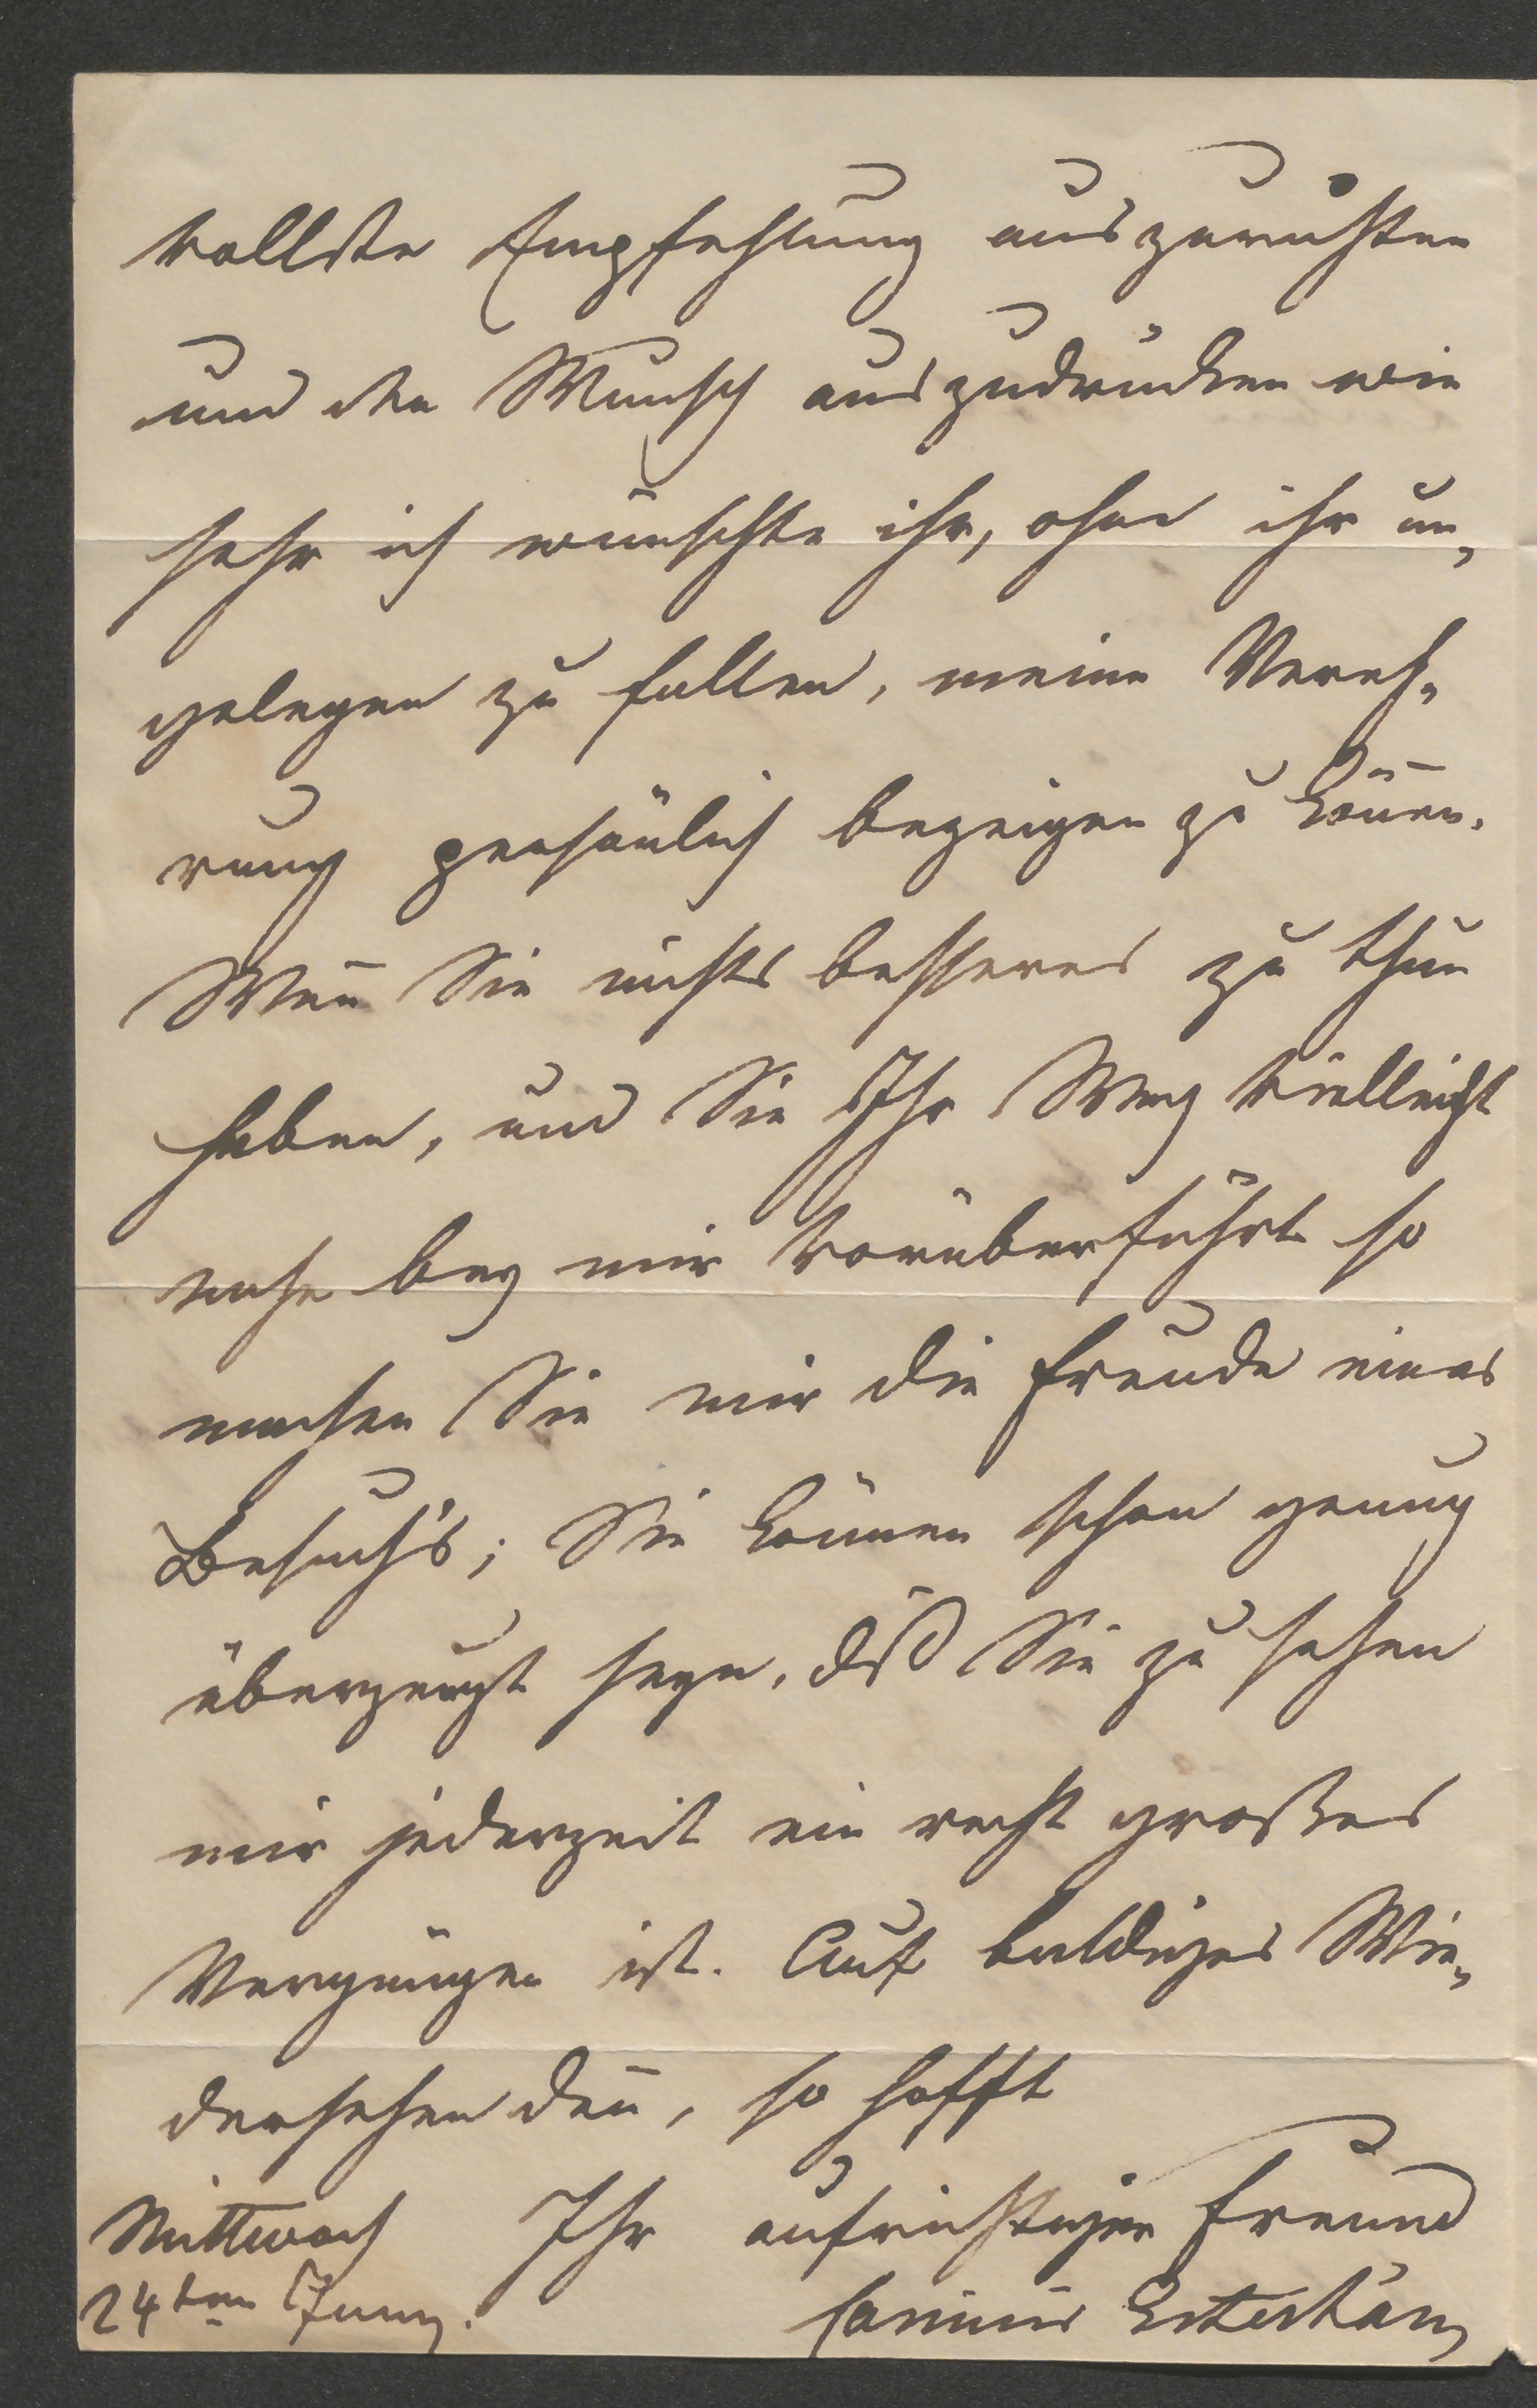 vollste Empfehlung auszurichten
und den Wunsch auszudrücken wie
sehr ich wünschte ihr, ohne ihr un„
gelegen zu fallen, meine Vereh„
rung persönlich bezeigen zu kön̅en.
Wen̅ Sie nichts besseres zu thun
haben, und Sie Ihr Weg vielleicht
nahe bey mir vorüberführt so
machen Sie mir die Freude eines
Besuch's; Sie können schon genug
überzeugt seyn, daß Sie zu sehen
mir jederzeit ein recht großes
Vergnügen ist. Auf baldiges Wie„
dersehen den̅, so hofft
Mittwoch Ihr aufrichtiger Freund
24ten Juny.